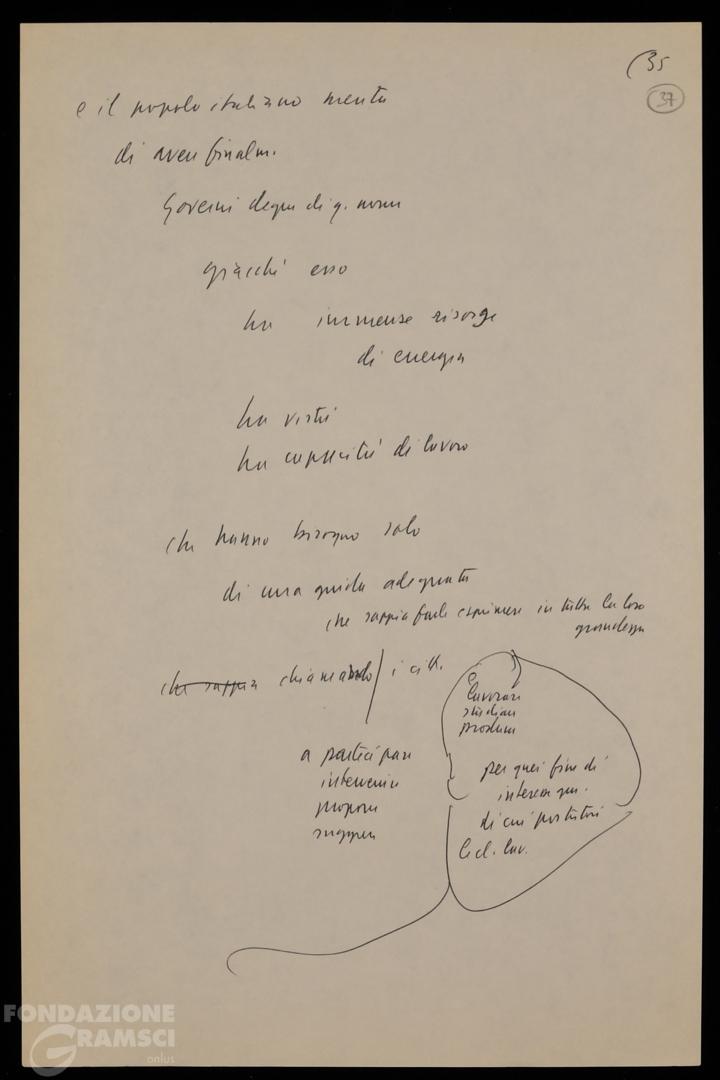 (35
37
e il popolo italiano merita
di avere finalm.
Governi degni di q. nome
giacché esso
ha immense risorse
di energia
ha virtù
ha capacità di lavoro
che hanno bisogno solo
di una guida adeguata
che sappia farle esprimere in tutta la loro
grandezza
che sappia chiamando / i citt.
a partecipare
intervenire
proporre
suggerire
e
lavorare
studiare
produrre
per quei fini di
interesse gen.
di cui portatori
la cl. lav.
FONDAZIONE
GRAMSCI
onlus